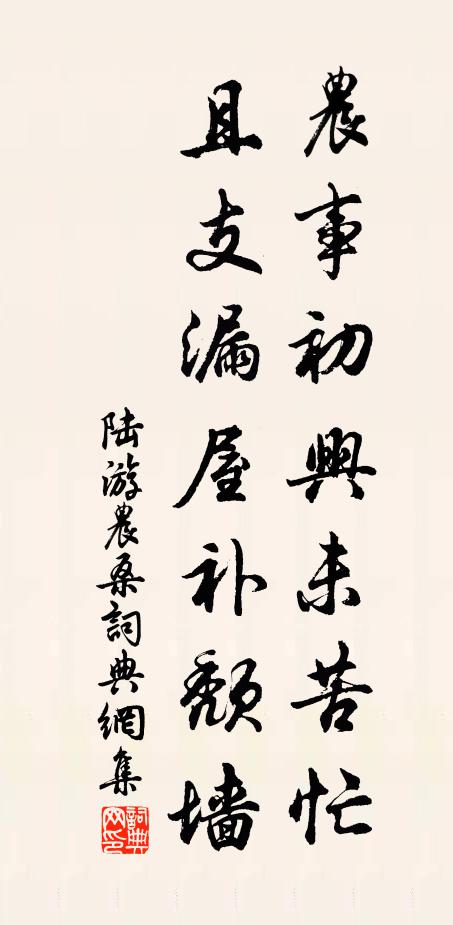 農事初興未苦忙
且支漏屋补頹墙
陆游農桑詞典網集
詞典网印